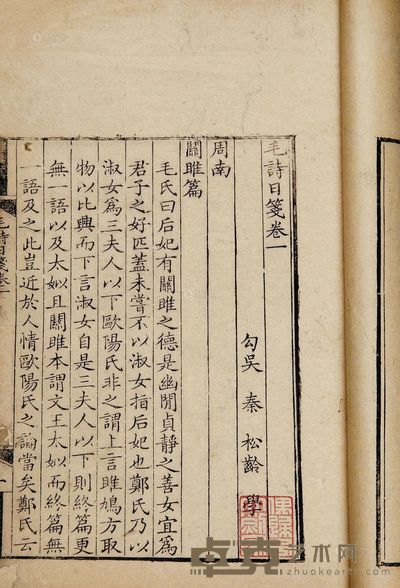 毛詩日箋卷一
勾吳 秦 松齡 學
周南
關雎篇
毛氏曰后妃有關雎之德是幽閒貞静之善女宜為
君子之好匹蓋未嘗不以淑女指后妃也鄭氏乃以
淑女為三夫人以下歐陽氏非之謂上言雎鳩方取
物以比興而下言淑女自是三夫人以下則終篇更
無一語以及太姒且關雎本謂文王太姒而終篇無
一語及之此豈近於人情歐陽氏之論當矣鄭氏云
毛詩日箋卷一
卓克艺术网
www.zhuokearts.com